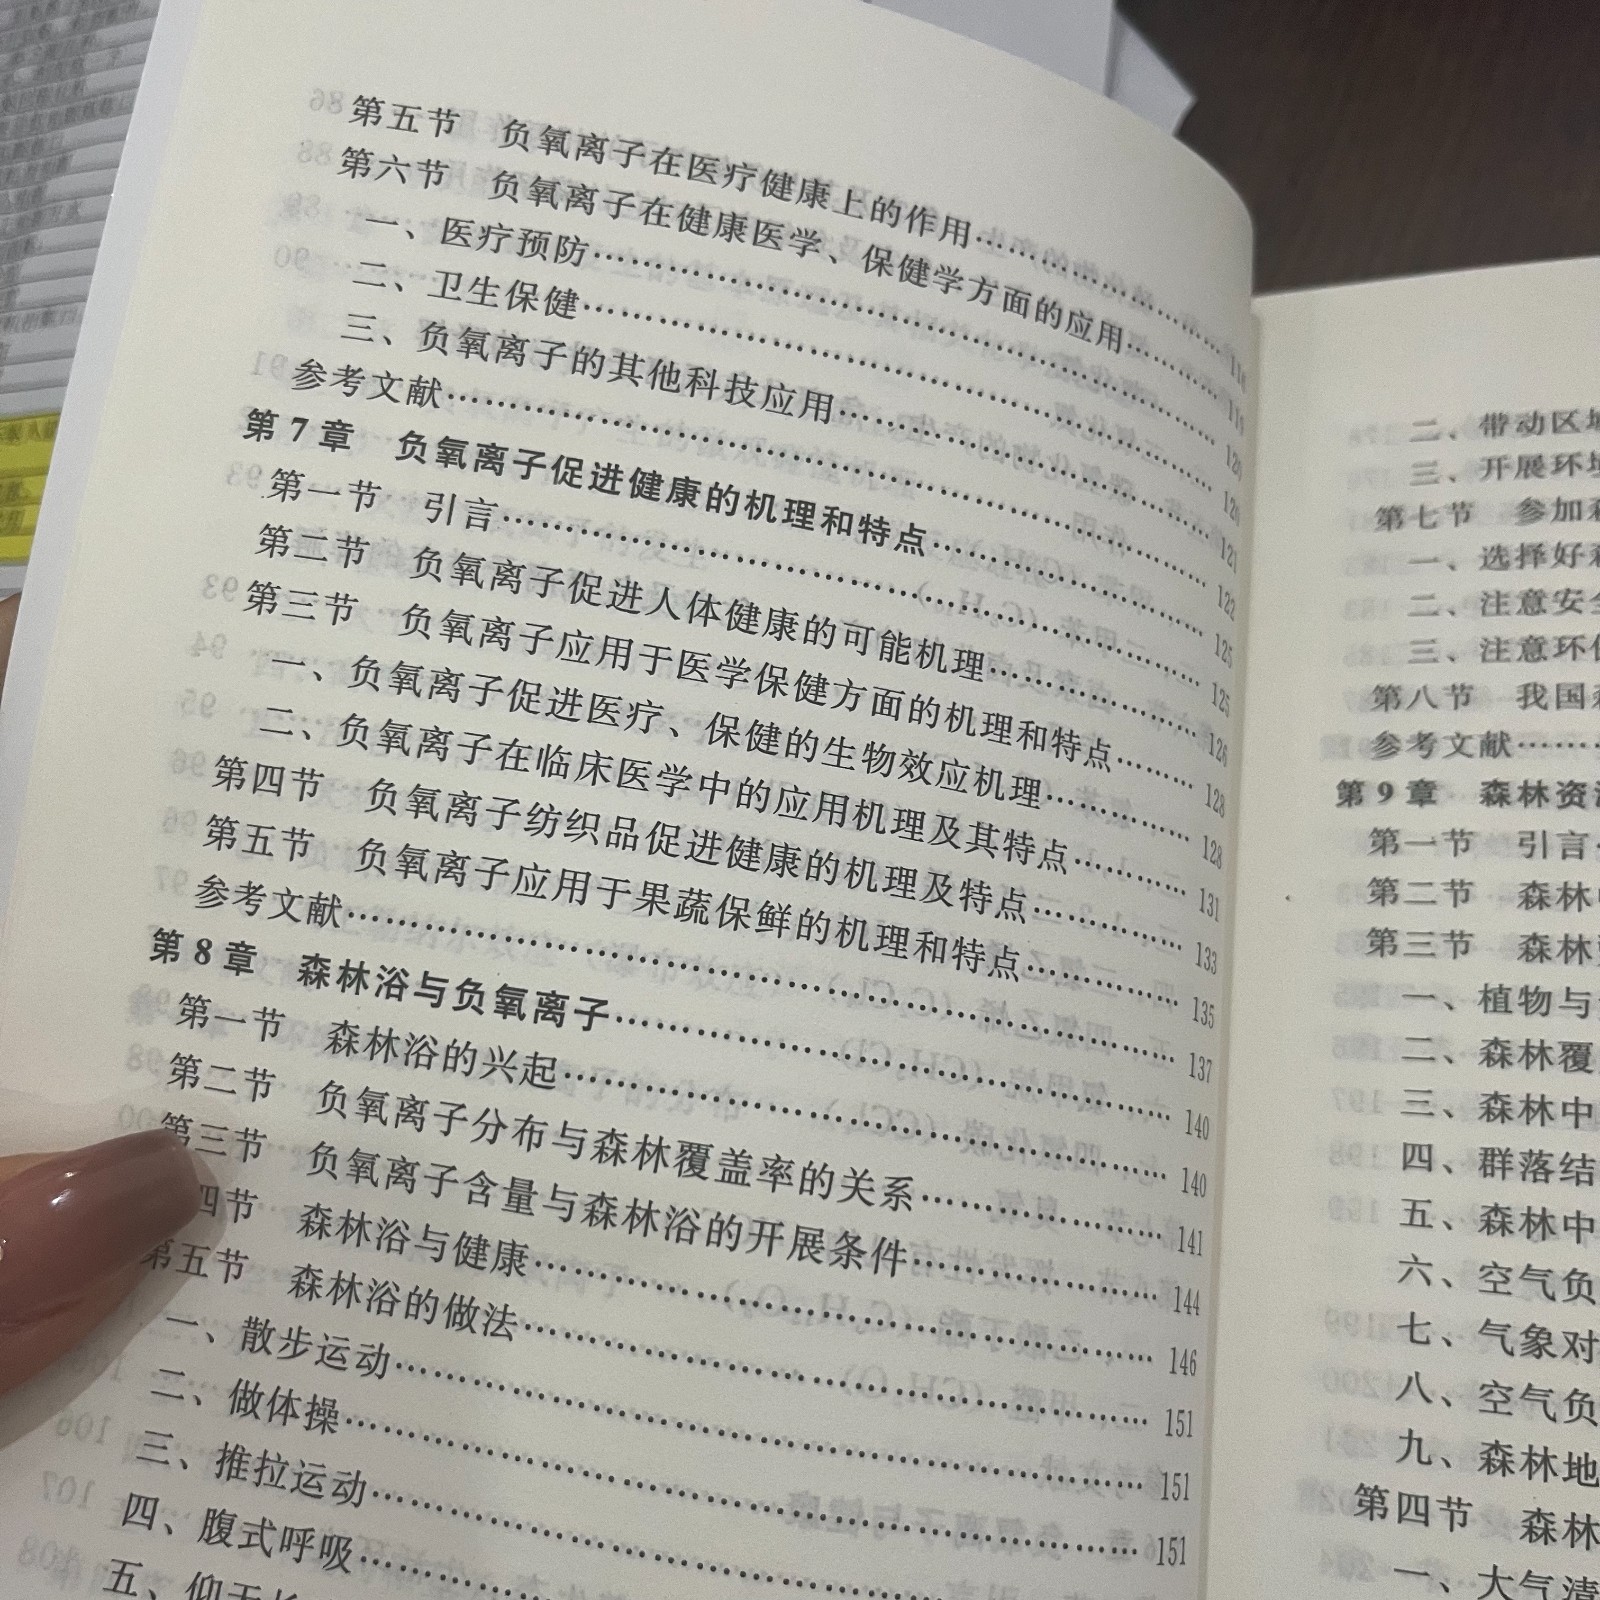 第五节 负氧离子在医疗健康上的作用……118
第六节 负氧离子在健康医学、保健学方面的应用……119
一、医疗预防……120
二、卫生保健……120
三、负氧离子的其他科技应用……121
参考文献……122
第7章 负氧离子促进健康的机理和特点……125
第一节 引言……125
第二节 负氧离子促进人体健康的可能机理……126
第三节 负氧离子应用于医学保健方面的机理和特点……128
一、负氧离子促进医疗、保健的生物效应机理……128
二、负氧离子在临床医学中的应用机理及其特点……131
第四节 负氧离子纺织品促进健康的机理及特点……133
第五节 负氧离子应用于果蔬保鲜的机理和特点……135
参考文献……137
第8章 森林浴与负氧离子……140
第一节 森林浴的兴起……140
第二节 负氧离子分布与森林覆盖率的关系……141
第三节 负氧离子含量与森林浴的开展条件……144
四节 森林浴与健康……146
第五节 森林浴的做法……151
一、散步运动……151
二、做体操……151
三、推拉运动……
四、腹式呼吸……
五、仰天长
二、带动区域
三、开展环境
第七节 参加森
一、选择好森
二、注意安全
三、注意环保
第八节 我国森
参考文献……
第9章 森林资源
第一节 引言
第二节 森林
第三节 森林
一、植物与
二、森林覆
三、森林中
四、群落结
五、森林中
六、空气负
七、气象对
八、空气负
九、森林地
第四节 森林
一、大气清